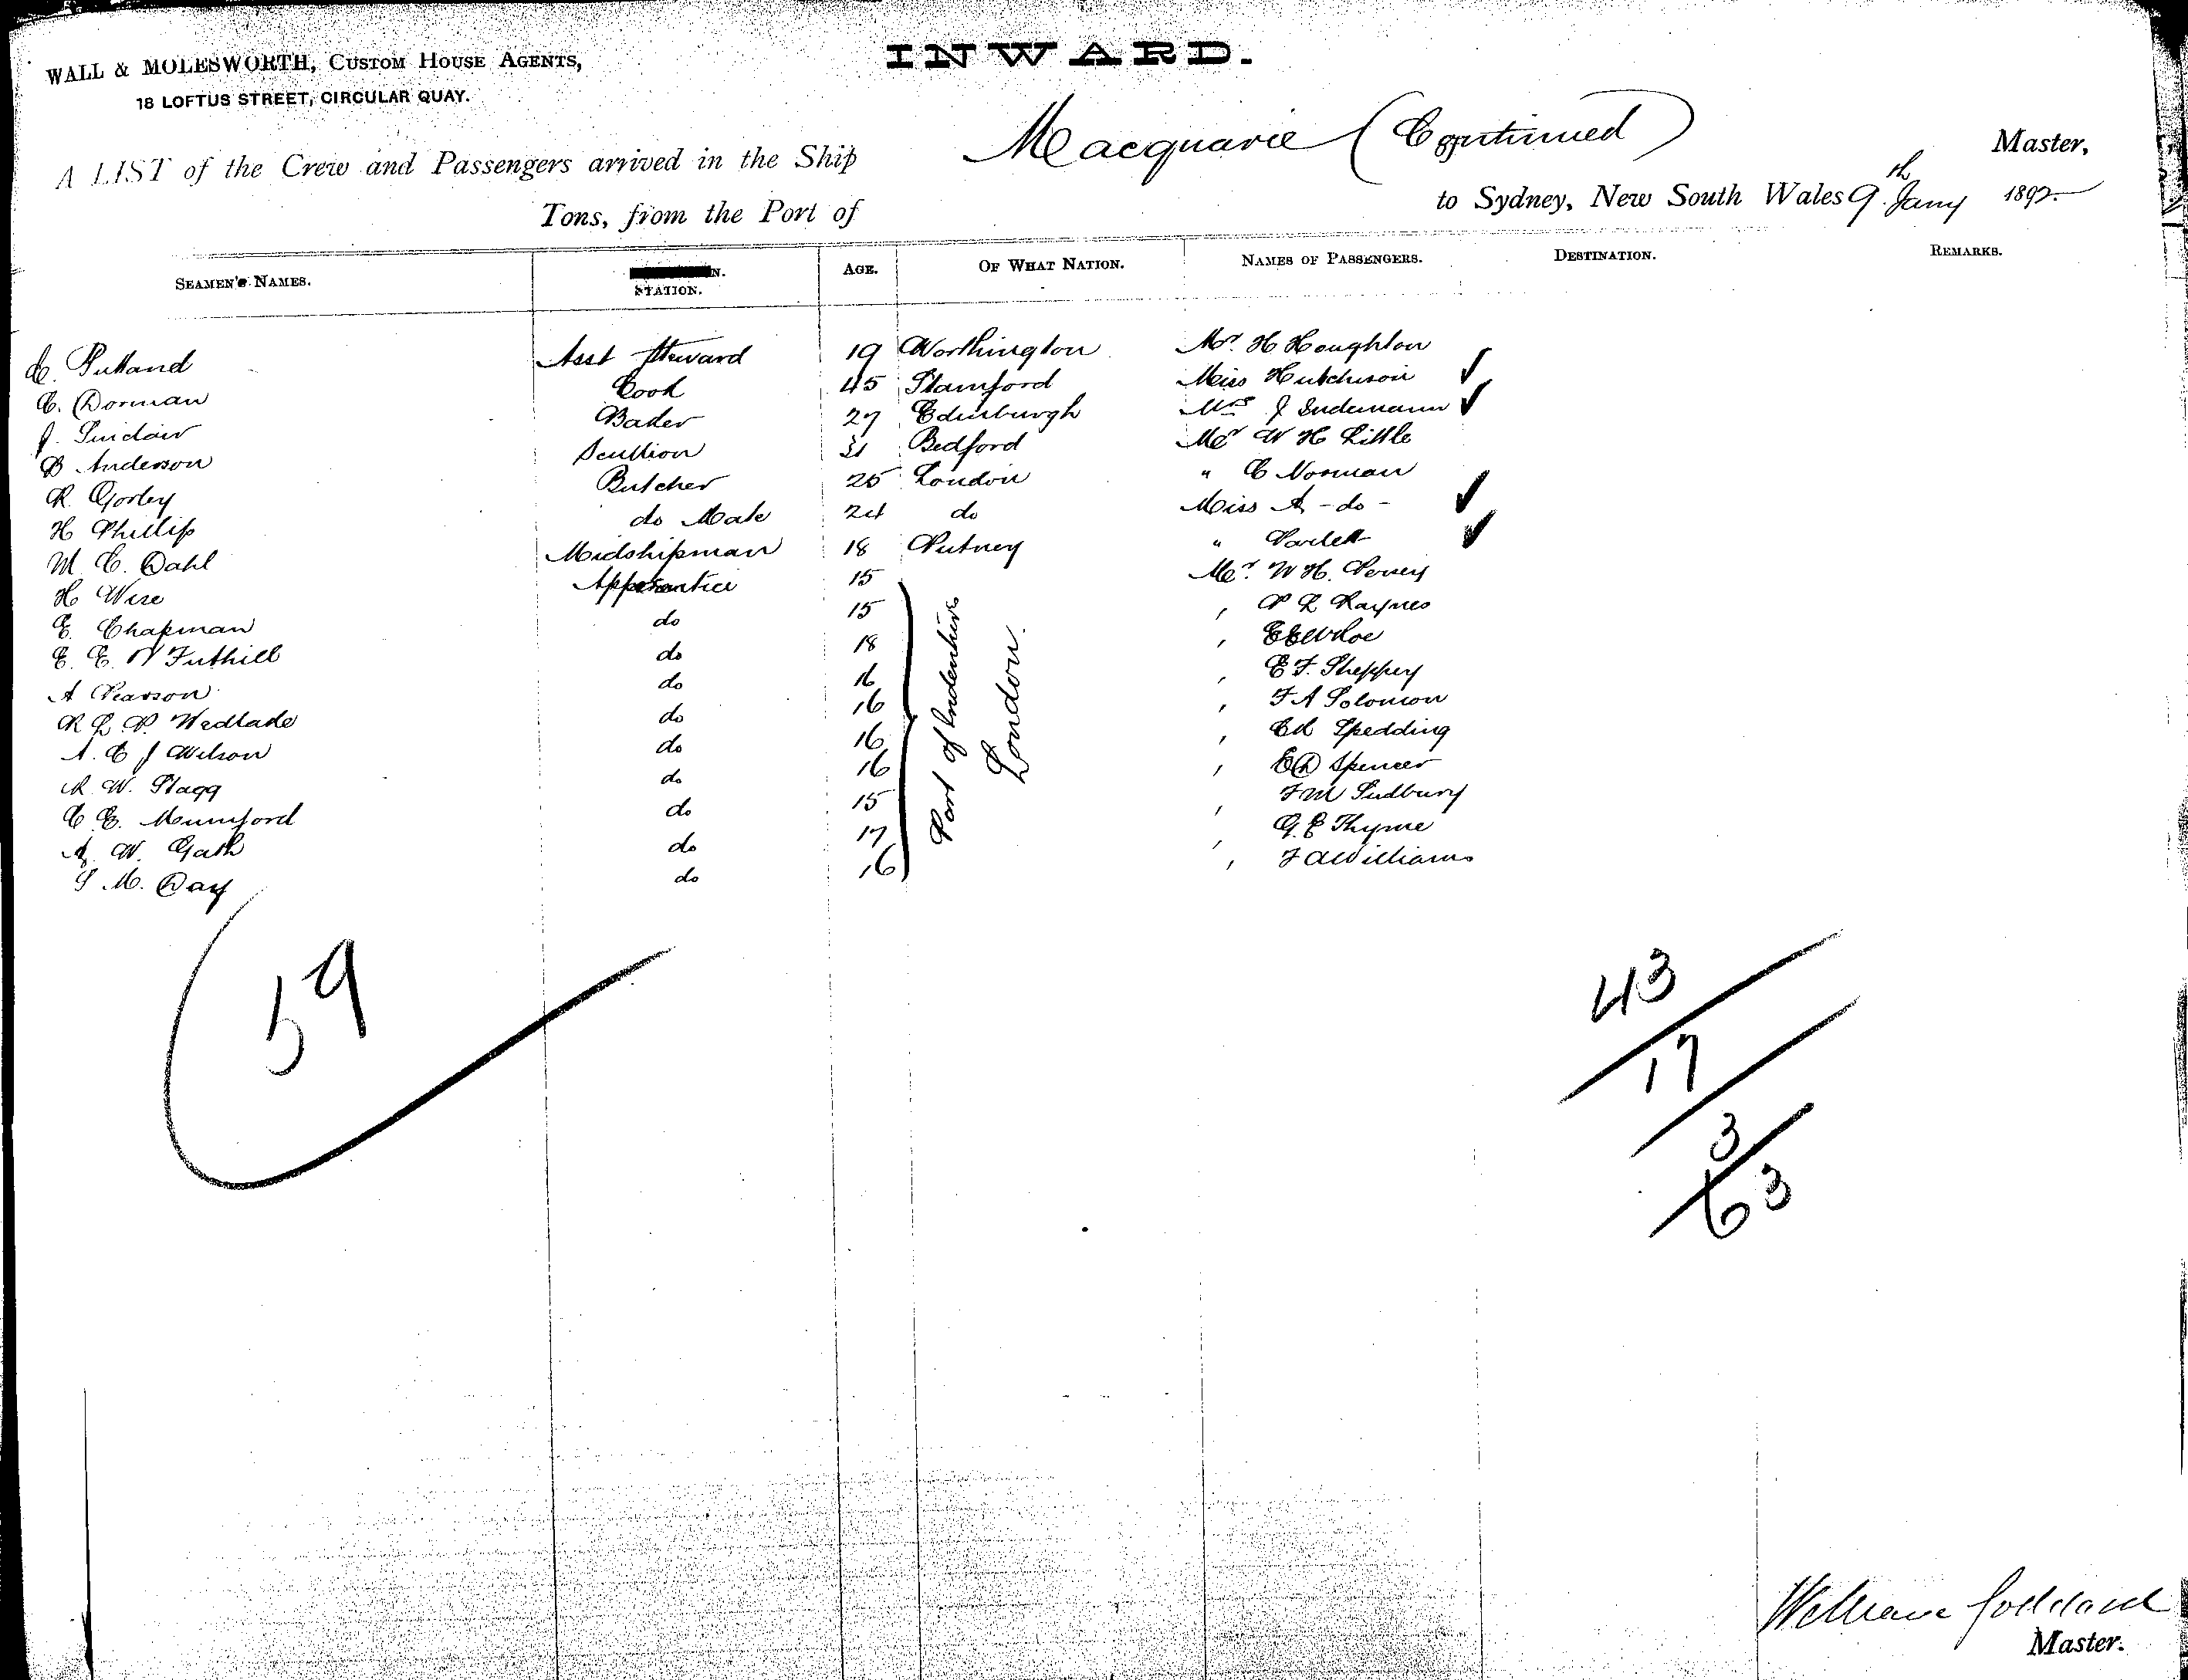 INWARD.
WALL & MOLESWORTH, CUSTOM HOUSE AGENTS,
18 LOFTUS STREET, CIRCULAR QUAY.
A LIST of the Crew and Passengers arrived in the Ship Macquarie (Continued) Master,
Tons, from the Port of to Sydney, New South Wales 9th Jany 1892
SEAMEN'S NAMES. STATION. AGE. OF WHAT NATION. NAMES OF PASSENGERS. DESTINATION. REMARKS.
Putland Asst Steward 19 Worthington Mr. H Houghton
C. Dorman Cook 45 Stamford Miss Hutchison ✓
J. Sinclair Baker 27 Edinburgh Mrs J Sudemann ✓
B Anderson Scullion 31 Bedford Mr W H Little
R. Gorley Butcher 25 London " C Norman
H Phillip do Mate 24 do Miss A - do - ✓
M. C. Dahl Midshipman 18 Putney " ✓
H Wise Apprentice 15 Mr. W H.
E. Chapman do 15 , P L Raynes
E. E. N Tuthill do 18 , Roe
A Pearson do 16 , E F. Sheppey
R L. P. Wedlake do 16 , F A Solomon
A. C J Wilson do 16 , Spedding
R. W. Stagg do 16 , E D Spencer
C E. Mumford do 15 , F M Sudbury
A. W. Gath do 17 , G. E Thyme
S M. Day do 16 , F A Williams
Port of Indenture
London.
59
43
17
3
63
William Goddard
Master.